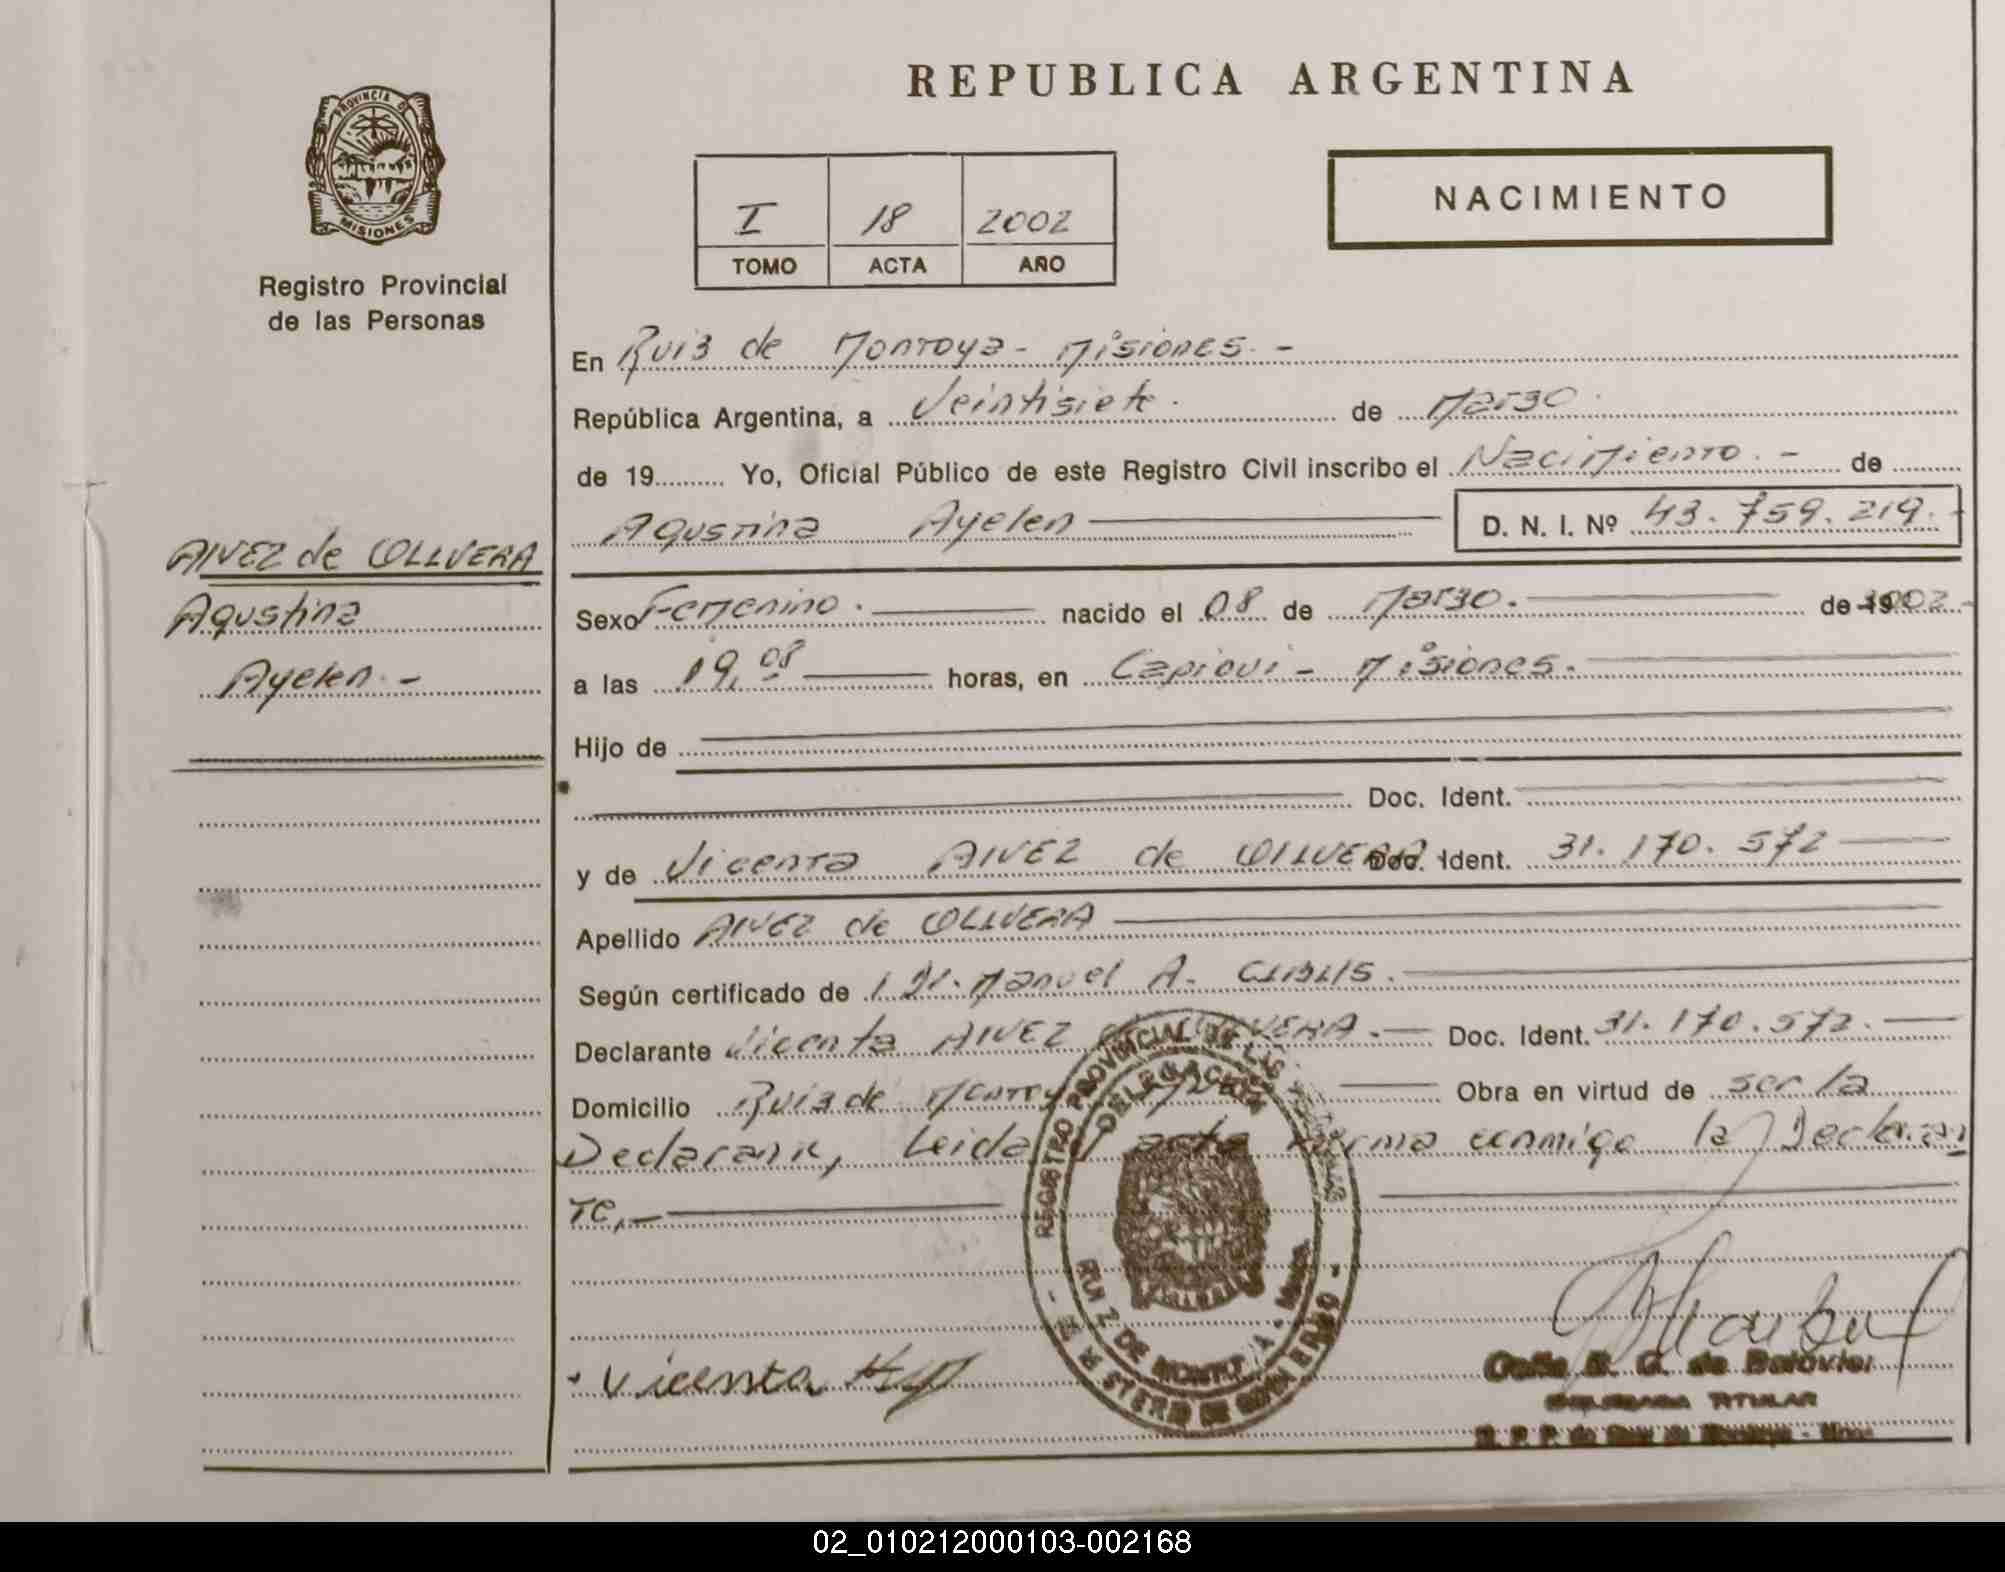 REPUBLICA ARGENTINA
PROVINCIA DE
MISIONES
Registro Provincial
de las Personas
I 18 2002
TOMO ACTA AÑO
NACIMIENTO
En Ruiz de Montoya - Misiones. -
República Argentina, a Veintisiete. de Marzo.
de 19 Yo, Oficial Público de este Registro Civil inscribo el Nacimiento. - de
Agustina Ayelen D. N. I. Nº 43.759.219. -
ALVEZ de OLIVERA
Agustina
Ayelen. -
Sexo Femenino. nacido el 08 de Marzo. de 19 2002 -
a las 19,08 horas, en Capiovi - Misiones.
Hijo de
Doc. Ident.
y de Vicenta ALVEZ de OLIVERA Doc. Ident. 31.170.572
Apellido ALVEZ de OLIVERA
Según certificado de Manuel A.
Declarante Vicenta ALVEZ OLIVERA. - Doc. Ident. 31.170.572.
Domicilio Ruiz de Obra en virtud de ser la
Declarante, Leida acta firma conmigo la Declaran
te, -
REGISTRO PROVINCIAL DE LAS PERSONAS
DELEGACION
RUIZ DE MONTOYA - Mnes.
- MINISTERIO DE GOBIERNO -
Vicenta
TITULAR
02_010212000103-002168